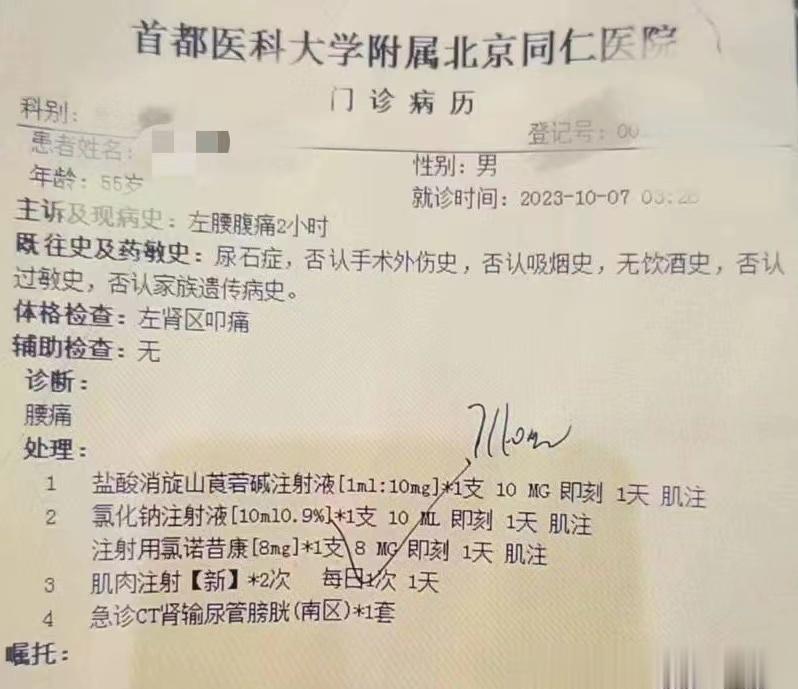 首都医科大学附属北京同仁医院
门诊病历
科别:
登记号: 00
患者姓名:
性别: 男
年龄: 55岁
就诊时间: 2023-10-07 03:26
主诉及现病史: 左腰腹痛2小时
既往史及药敏史: 尿石症, 否认手术外伤史, 否认吸烟史, 无饮酒史, 否认
过敏史, 否认家族遗传病史。
体格检查: 左肾区叩痛
辅助检查: 无
诊断:
腰痛
处理:
1 盐酸消旋山莨菪碱注射液[1ml:10mg]*1支 10 MG 即刻 1天 肌注
2 氯化钠注射液[10ml0.9%]*1支 10 ML 即刻 1天 肌注
注射用氯诺昔康[8mg]*1支 8 MG 即刻 1天 肌注
3 肌肉注射【新】*2次 每日1次 1天
4 急诊CT肾输尿管膀胱(南区)*1套
嘱托: